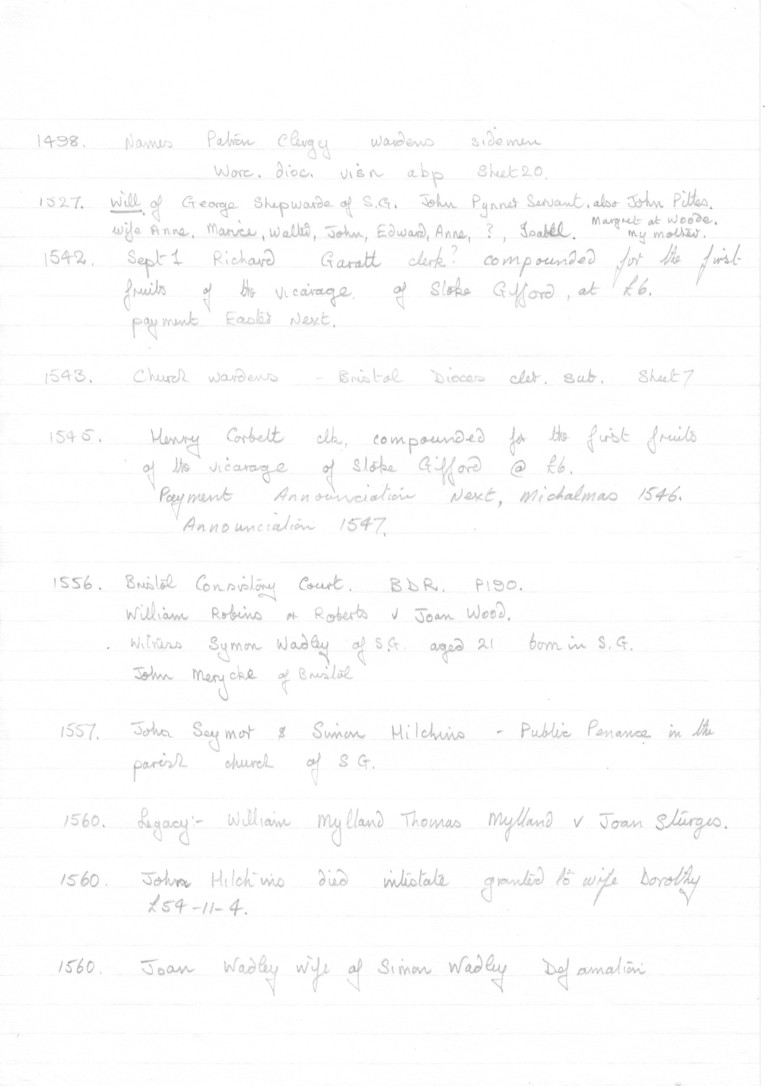 1498. Names Patron Clergy wardens sidemen
Worc. dioc. visn abp Sheet 20.
1527. Will of George Shepwarde of S.G. John Pynnet Servant. also John Pittes.
Wife Anne. Marice, Walter, John, Edward, Anne, ?, Isabel. Margret at Woode. My mother.
1542. Sept 1 Richard Garatt clerk? compounded for the first
fruits of the vicarage of Stoke Gifford, at £6.
payment Easter Next.
1543. Church wardens - Bristol Dioces cler. sub. Sheet 7
1545. Henry Corbett clk, compounded for the first fruits
of the vicarage of Stoke Gifford @ £6.
Payment Announciation Next, Michalmas 1546.
Announciation 1547.
1556. Bristol Consistory Court. BDR. P190.
William Robins or Roberts v Joan Wood.
Witness Symon Wadley of S.G. aged 21 born in S.G.
John Merycke of Bristol
1557. John Seymor & Simon Hitchins - Public Penance in the
parish church of S G.
1560. Legacy:- William Mylland Thomas Mylland v Joan Sturges.
1560. John Hitchins died intestate granted to wife Dorothy
£54-11-4.
1560. Joan Wadley wife of Simon Wadley Defamation